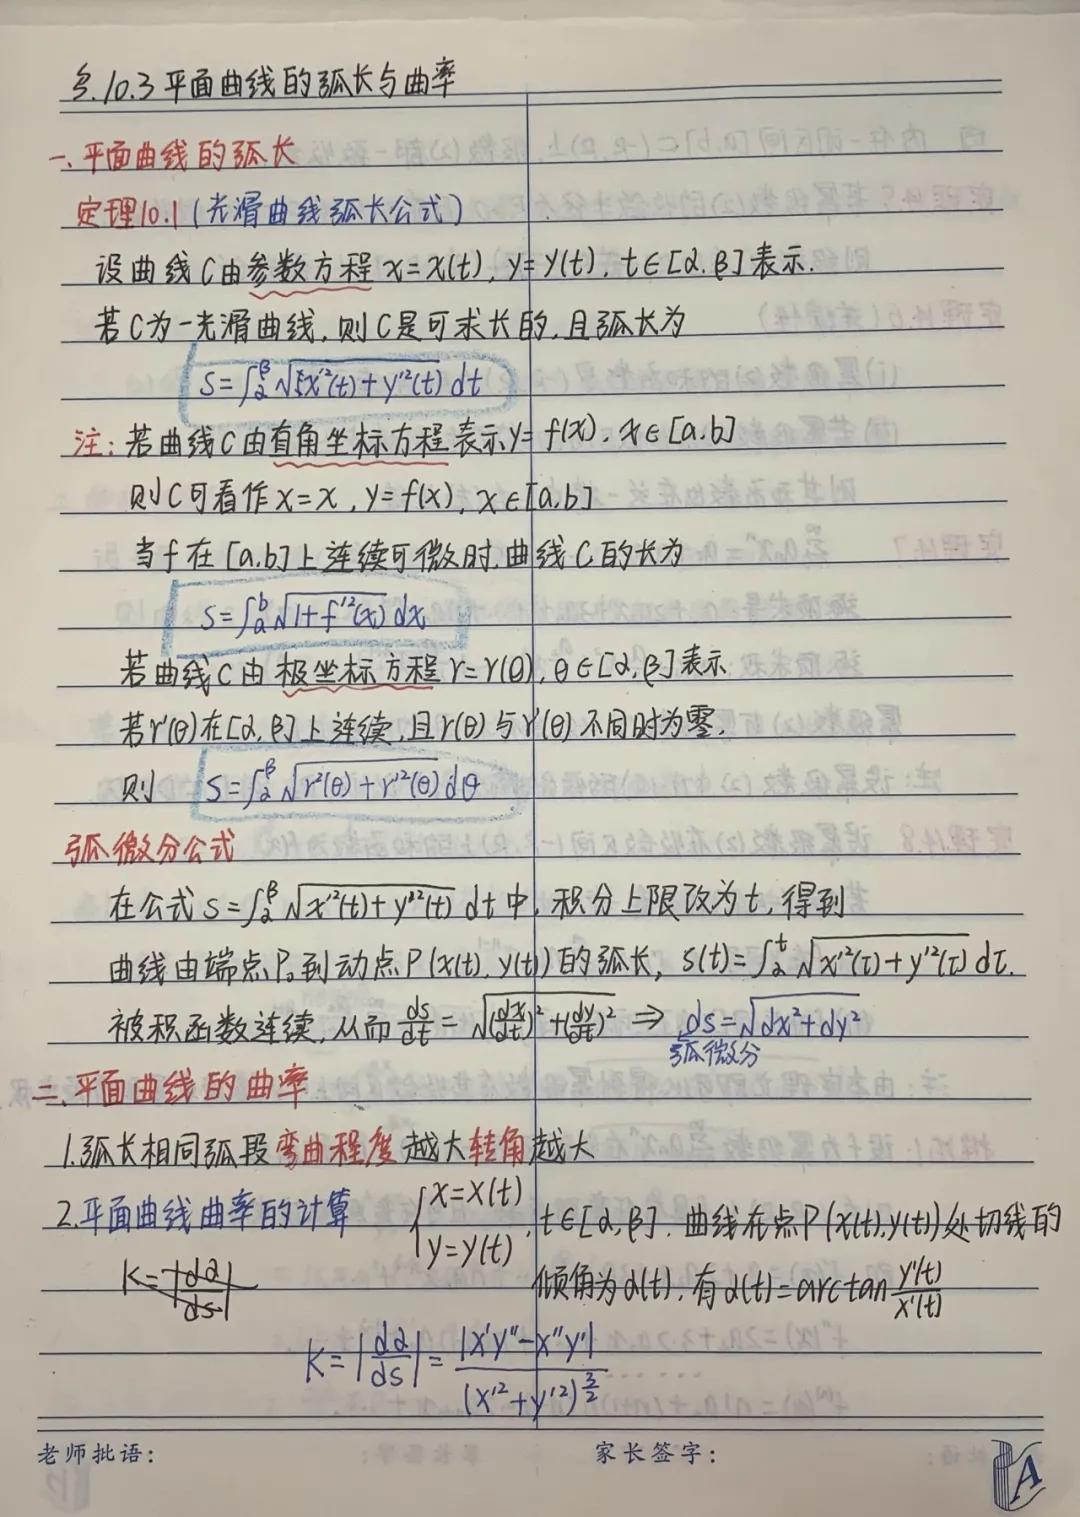 §.10.3 平面曲线的弧长与曲率
一、平面曲线的弧长
定理10.1 (光滑曲线弧长公式)
设曲线C由参数方程 x=x(t), y=y(t), t∈[α,β]表示.
若C为一光滑曲线,则C是可求长的,且弧长为
S=∫_α^β √(x'²(t)+y'²(t)) dt
注:若曲线C由直角坐标方程表示y=f(x), x∈[a,b]
则C可看作x=x, y=f(x), x∈[a,b]
当f在[a,b]上连续可微时,曲线C的长为
S=∫_a^b √(1+f'²(x)) dx
若曲线C由极坐标方程r=r(θ), θ∈[α,β]表示
若r'(θ)在[α,β]上连续,且r(θ)与r'(θ)不同时为零,
则 S=∫_α^β √(r²(θ)+r'²(θ)) dθ
弧微分公式
在公式S=∫_α^β √(x'²(t)+y'²(t)) dt中,积分上限改为t,得到
曲线由端点P₀到动点P(x(t),y(t))的弧长, S(t)=∫_α^t √(x'²(τ)+y'²(τ)) dτ.
被积函数连续,从而 ds/dt = √((dx/dt)²+(dy/dt)²) ⇒ ds=√(dx²+dy²)
弧微分
二、平面曲线的曲率
1.弧长相同弧段弯曲程度越大转角越大
2.平面曲线曲率的计算 {x=x(t) y=y(t), t∈[α,β]. 曲线在点P(x(t),y(t))处切线的
K=|dα/ds|
倾角为α(t), 有α(t)=arctan y'(t)/x'(t)
K=|dα/ds|=|x'y''-x''y'|/(x'²+y'²)^(3/2)
老师批语: 家长签字:
A